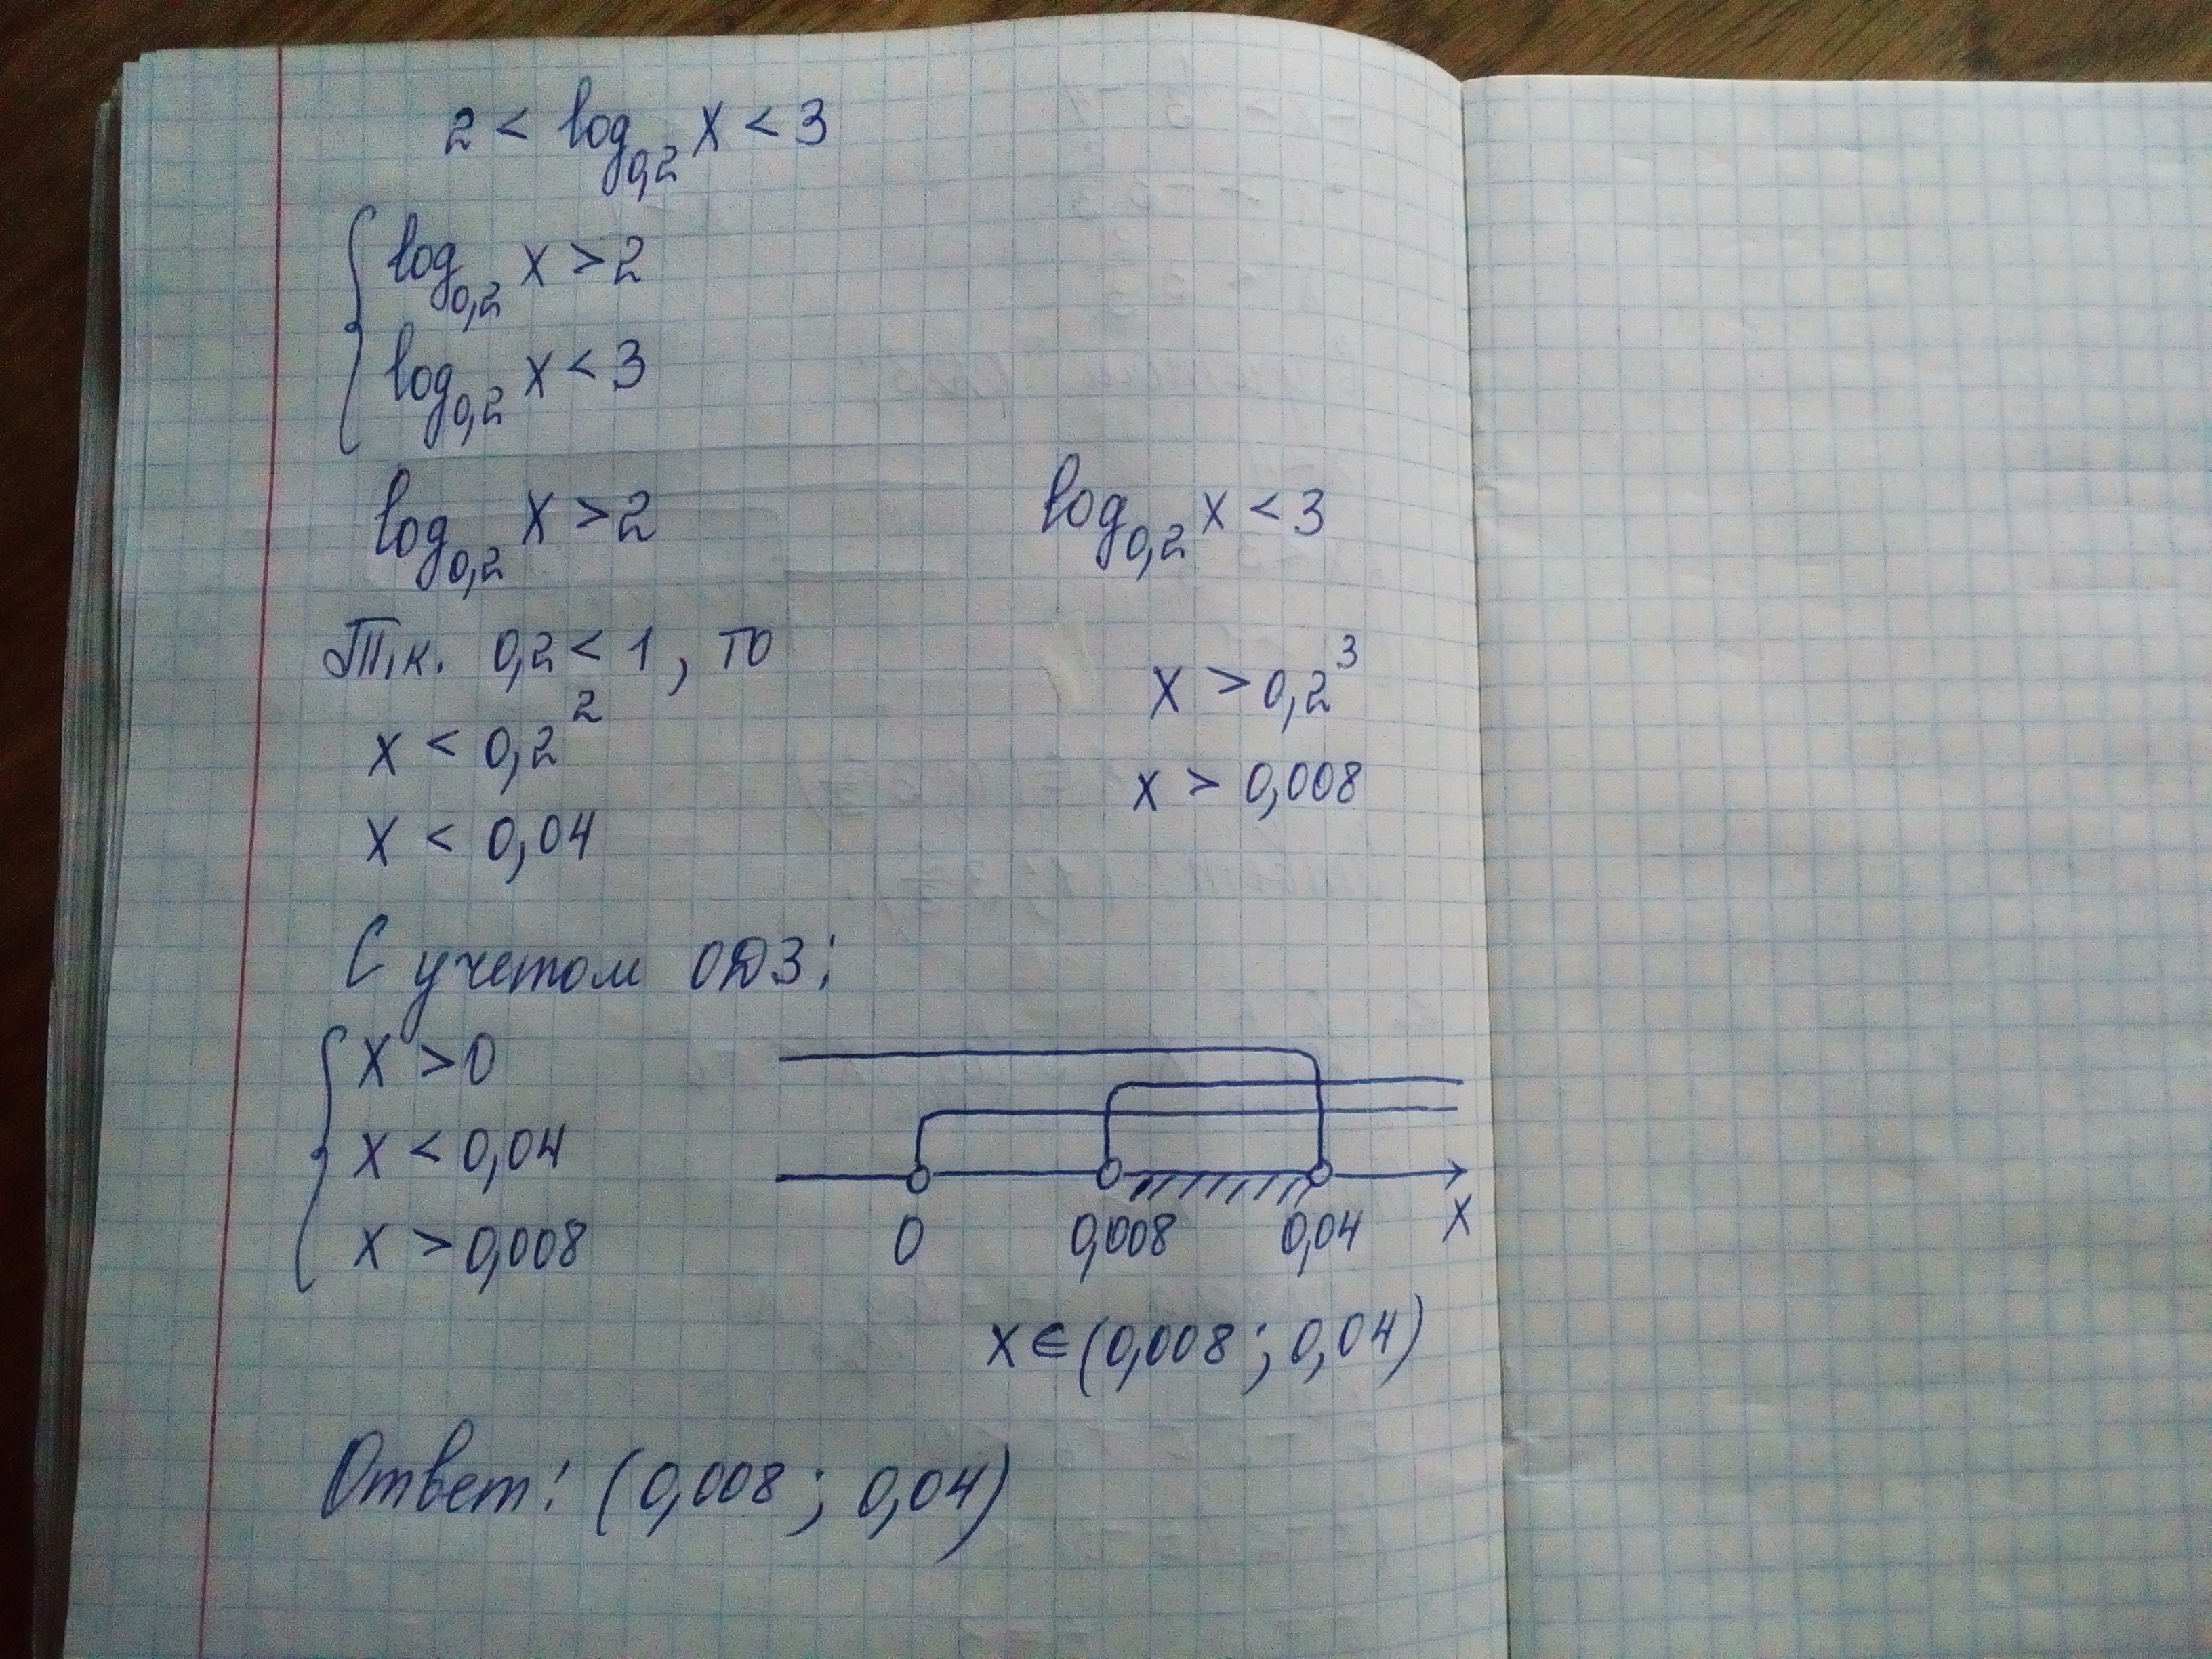 2 < log₀,₂ x < 3
log₀,₂ x > 2
log₀,₂ x < 3
log₀,₂ x > 2
log₀,₂ x < 3
Т.к. 0,2 < 1, то
x < 0,2²
x > 0,2³
x < 0,04
x > 0,008
С учетом ОДЗ:
x > 0
x < 0,04
x > 0,008
0 0,008 0,04 x
x ∈ (0,008; 0,04)
Ответ: (0,008; 0,04)